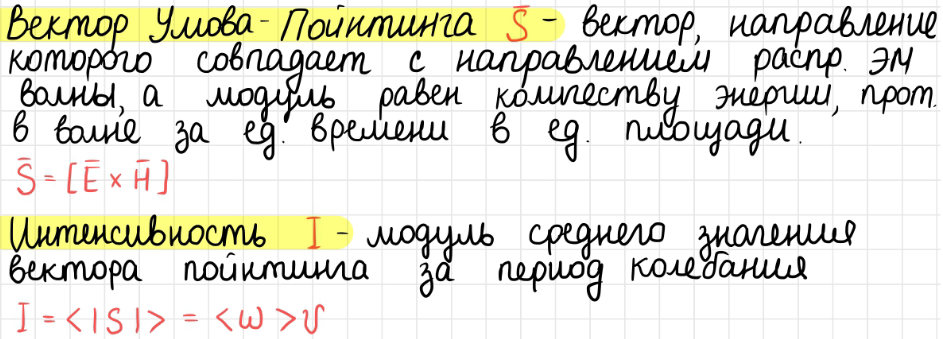 Вектор Умова-Пойнтинга S̄ - вектор, направление
которого совпадает с направлением распр. ЭМ
волны, а модуль равен количеству энергии, прот.
в волне за ед. времени в ед. площади.
S̄ = [Ē × H̄]
Интенсивность I - модуль среднего значения
вектора пойнтинга за период колебания
I = <|S|> = <w>v